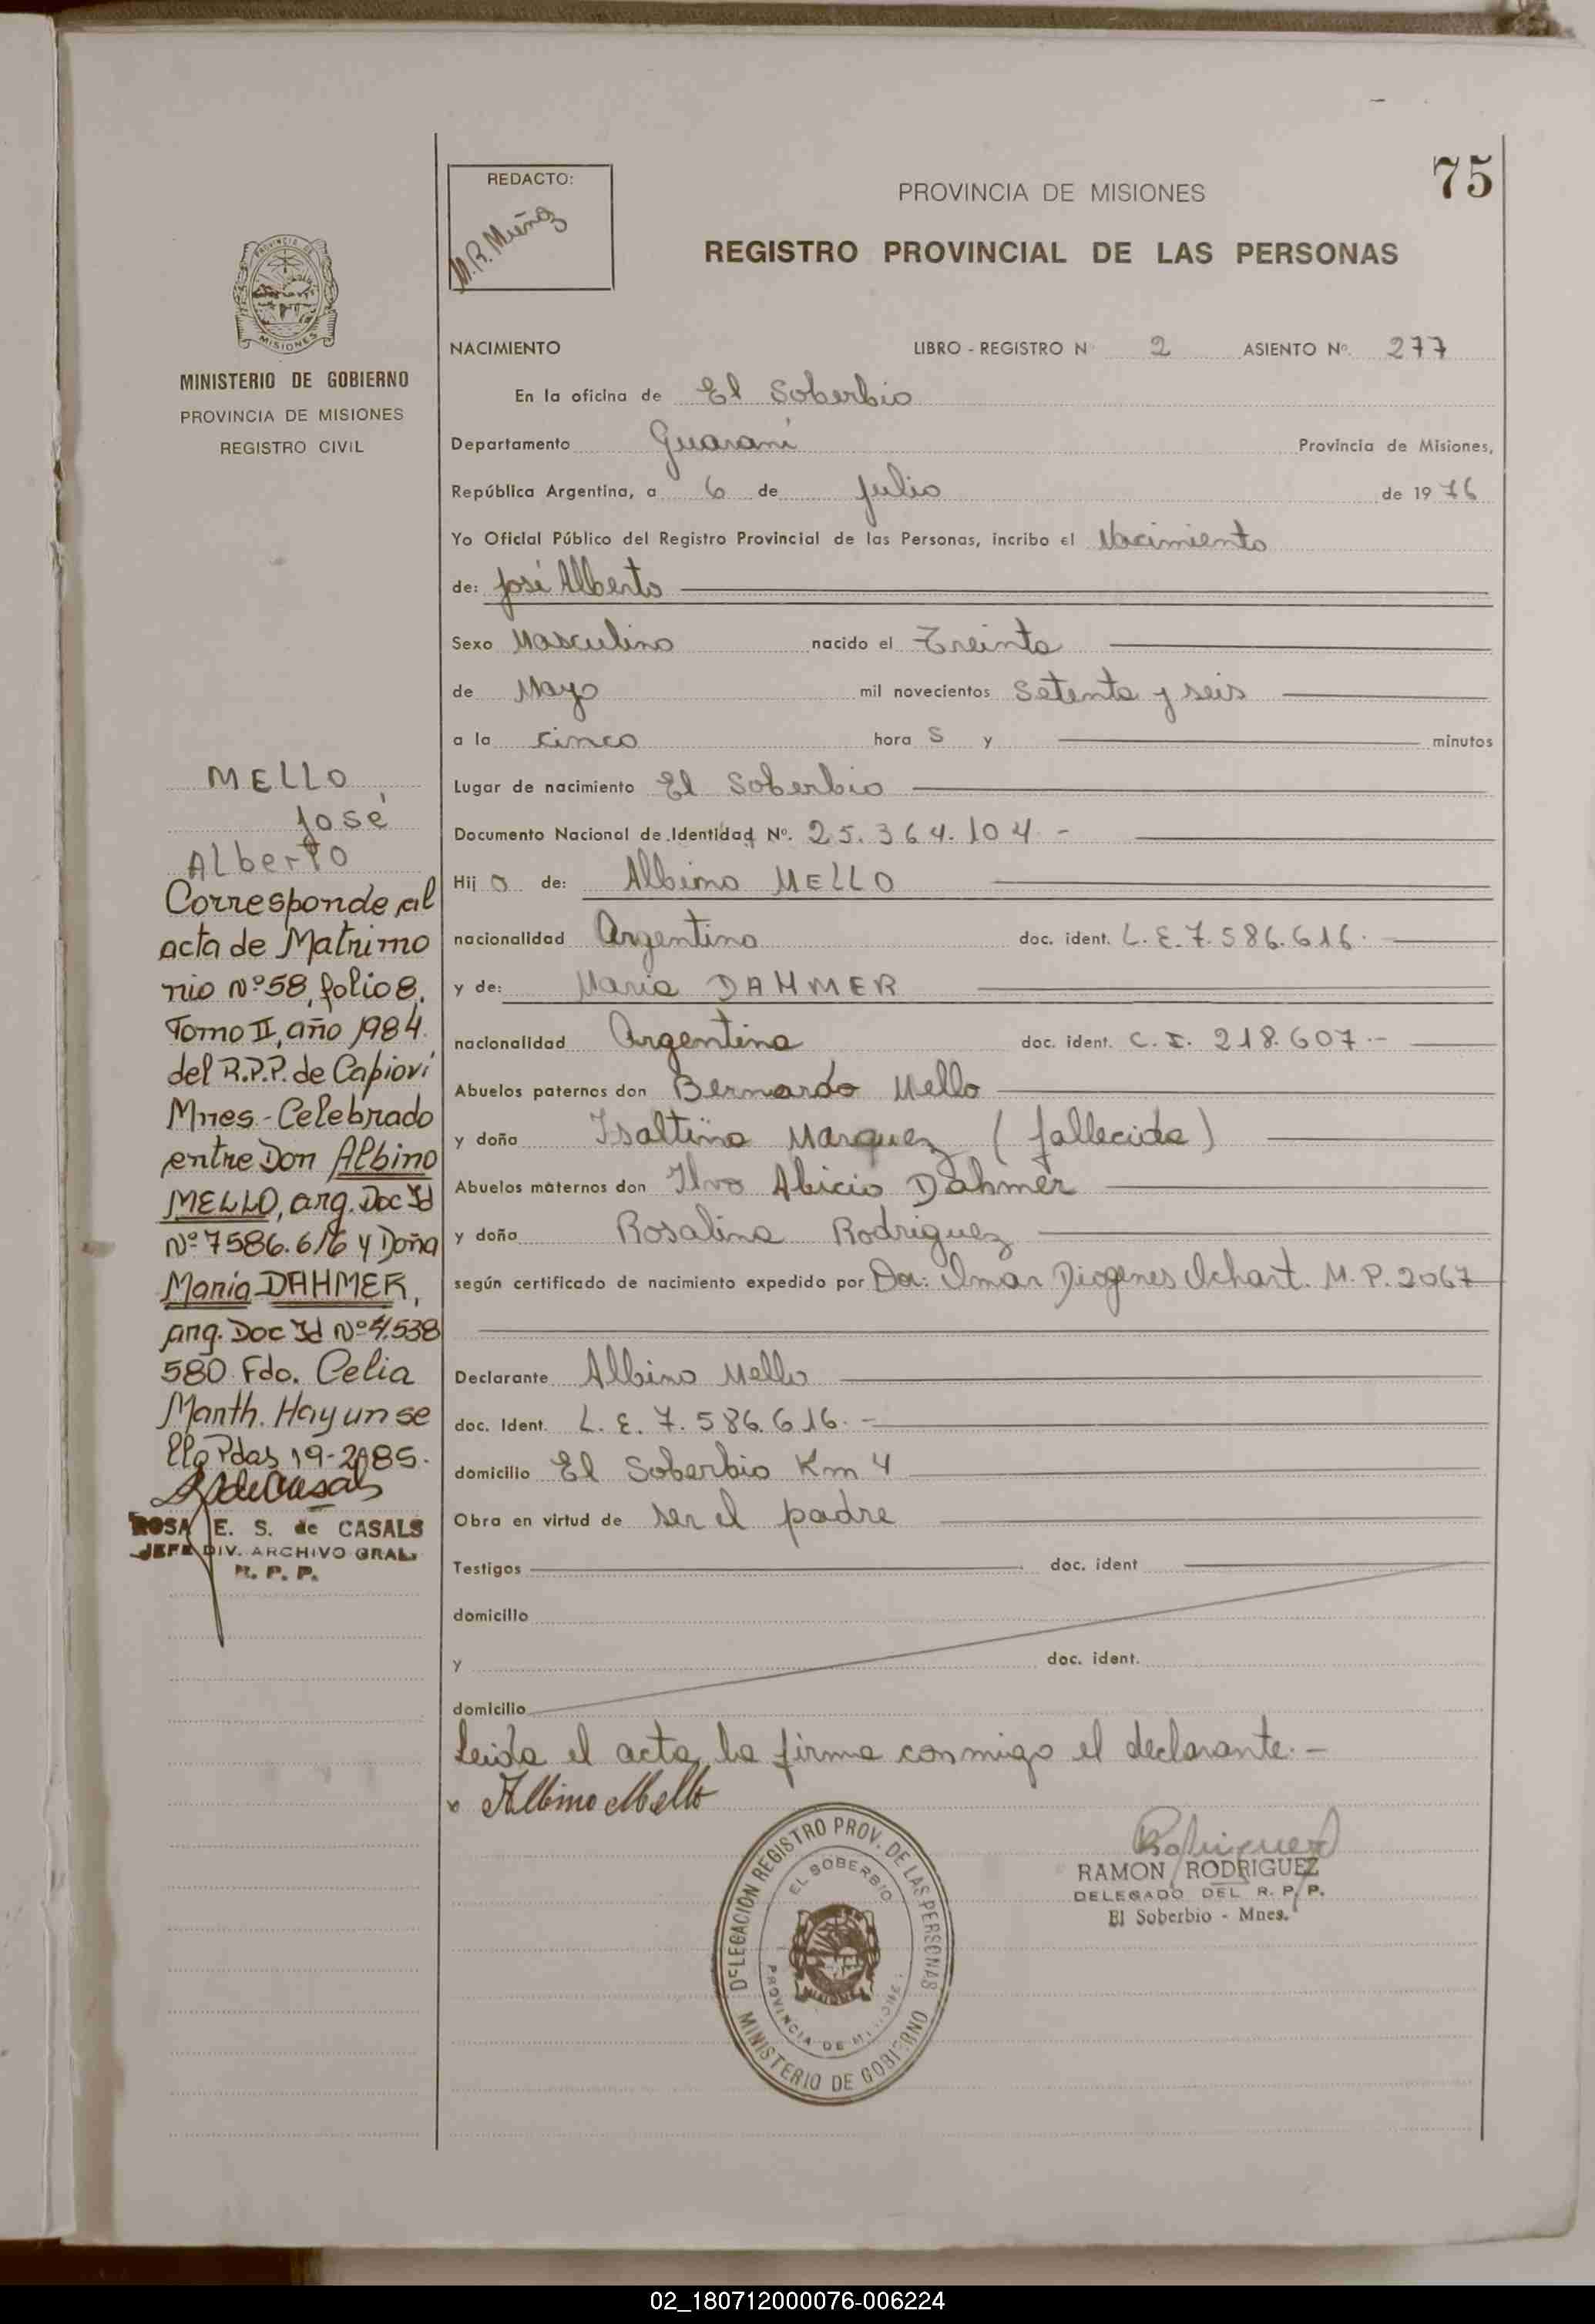 75
REDACTO:
M.R. Muñoz
PROVINCIA DE MISIONES
REGISTRO PROVINCIAL DE LAS PERSONAS
PROVINCIA DE
MISIONES
MINISTERIO DE GOBIERNO
PROVINCIA DE MISIONES
REGISTRO CIVIL
MELLO
José
Alberto
Corresponde al
acta de Matrimo
nio Nº 58, folio 8,
Tomo II, año 1984.
del R.P.P. de Capioví
Mnes - Celebrado
entre Don Albino
MELLO, arg. Doc Id
Nº 7586.616 y Doña
Maria DAHMER,
arg. Doc Id Nº 4.538
580 Fdo. Celia
Manth. Hay un se
llo Pdas 19-2-85.
ROSA E. S. de CASALS
JEFE DIV. ARCHIVO GRAL.
R. P. P.
NACIMIENTO LIBRO - REGISTRO Nº 2 ASIENTO Nº. 277
En la oficina de El Soberbio
Departamento Guaraní Provincia de Misiones,
República Argentina, a 6 de Julio de 1976
Yo Oficial Público del Registro Provincial de las Personas, incribo el Nacimiento
de: José Alberto
Sexo Masculino nacido el Treinta
de Mayo mil novecientos Setenta y seis
a la cinco hora s y minutos
Lugar de nacimiento El Soberbio
Documento Nacional de Identidad Nº. 25.364.104.-
Hij o de: Albino MELLO
nacionalidad Argentina doc. ident. L.E. 7.586.616.-
y de: Maria DAHMER
nacionalidad Argentina doc. ident. C.I. 218.607.-
Abuelos paternos don Bernardo Mello
y doña Isaltina Marquez (fallecida)
Abuelos maternos don Ilvo Abicio Dahmer
y doña Rosalina Rodriguez
según certificado de nacimiento expedido por Dr: Omar Diogenes Ichart. M.P. 2067
Declarante Albino Mello
doc. Ident. L.E. 7.586.616.-
domicilio El Soberbio Km 4
Obra en virtud de ser el padre
Testigos doc. ident
domicilio
y doc. ident.
domicilio
Leida el acta, la firma conmigo el declarante.-
x Albino Mello
DELEGACION REGISTRO PROV. DE LAS PERSONAS
EL SOBERBIO
PROVINCIA DE MISIONES
MINISTERIO DE GOBIERNO
Rodriguez
RAMON RODRIGUEZ
DELEGADO DEL R. P. P.
El Soberbio - Mnes.
02_180712000076-006224